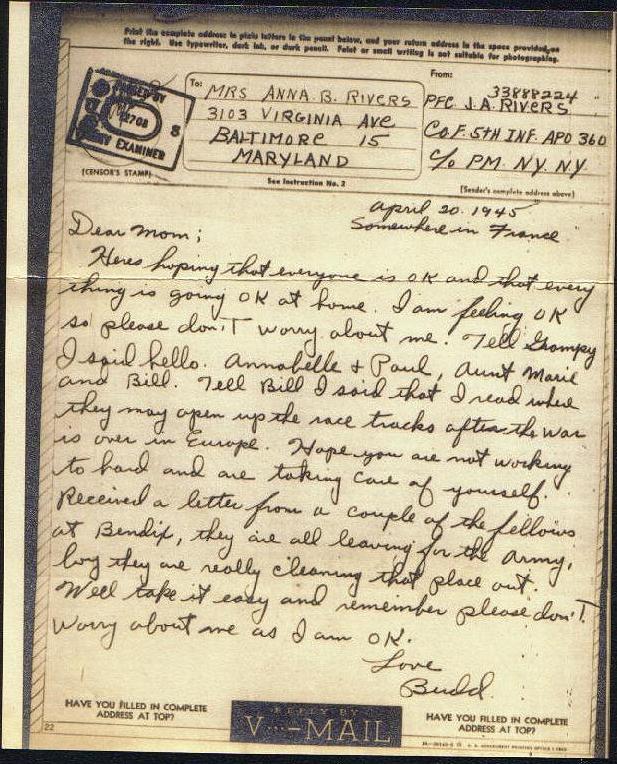 Print the complete address in plain letters in the panel below, and your return address in the space provided on
the right. Use typewriter, dark ink, or dark pencil. Faint or small writing is not suitable for photographing.
To:
MRS ANNA B. RIVERS
3103 VIRGINIA AVE
BALTIMORE 15
MARYLAND
From:
33888224
PFC. J.A. RIVERS
CO.F. 5TH INF. APO 360
C/O PM. NY. NY
PASSED BY
12708
S
ARMY EXAMINER
(CENSOR'S STAMP)
See Instruction No. 2
(Sender's complete address above)
April 20. 1945
Somewhere in France
Dear Mom;
Heres hoping that everyone is OK and that every
thing is going OK at home. I am feeling OK
so please don't worry about me. Tell Grampy
I said hello. Annabelle & Paul, Aunt Marie
and Bill. Tell Bill I said that I read where
they may open up the race tracks after the war
is over in Europe. Hope you are not working
to hard and are taking care of yourself.
Received a letter from a couple of the fellows
at Bendix, they are all leaving for the Army,
boy they are really cleaning that place out.
Well take it easy and remember please don't
worry about me as I am OK.
Love
Budd.
HAVE YOU FILLED IN COMPLETE
ADDRESS AT TOP?
REPLY BY
V···—MAIL
HAVE YOU FILLED IN COMPLETE
ADDRESS AT TOP?
22
U. S. GOVERNMENT PRINTING OFFICE